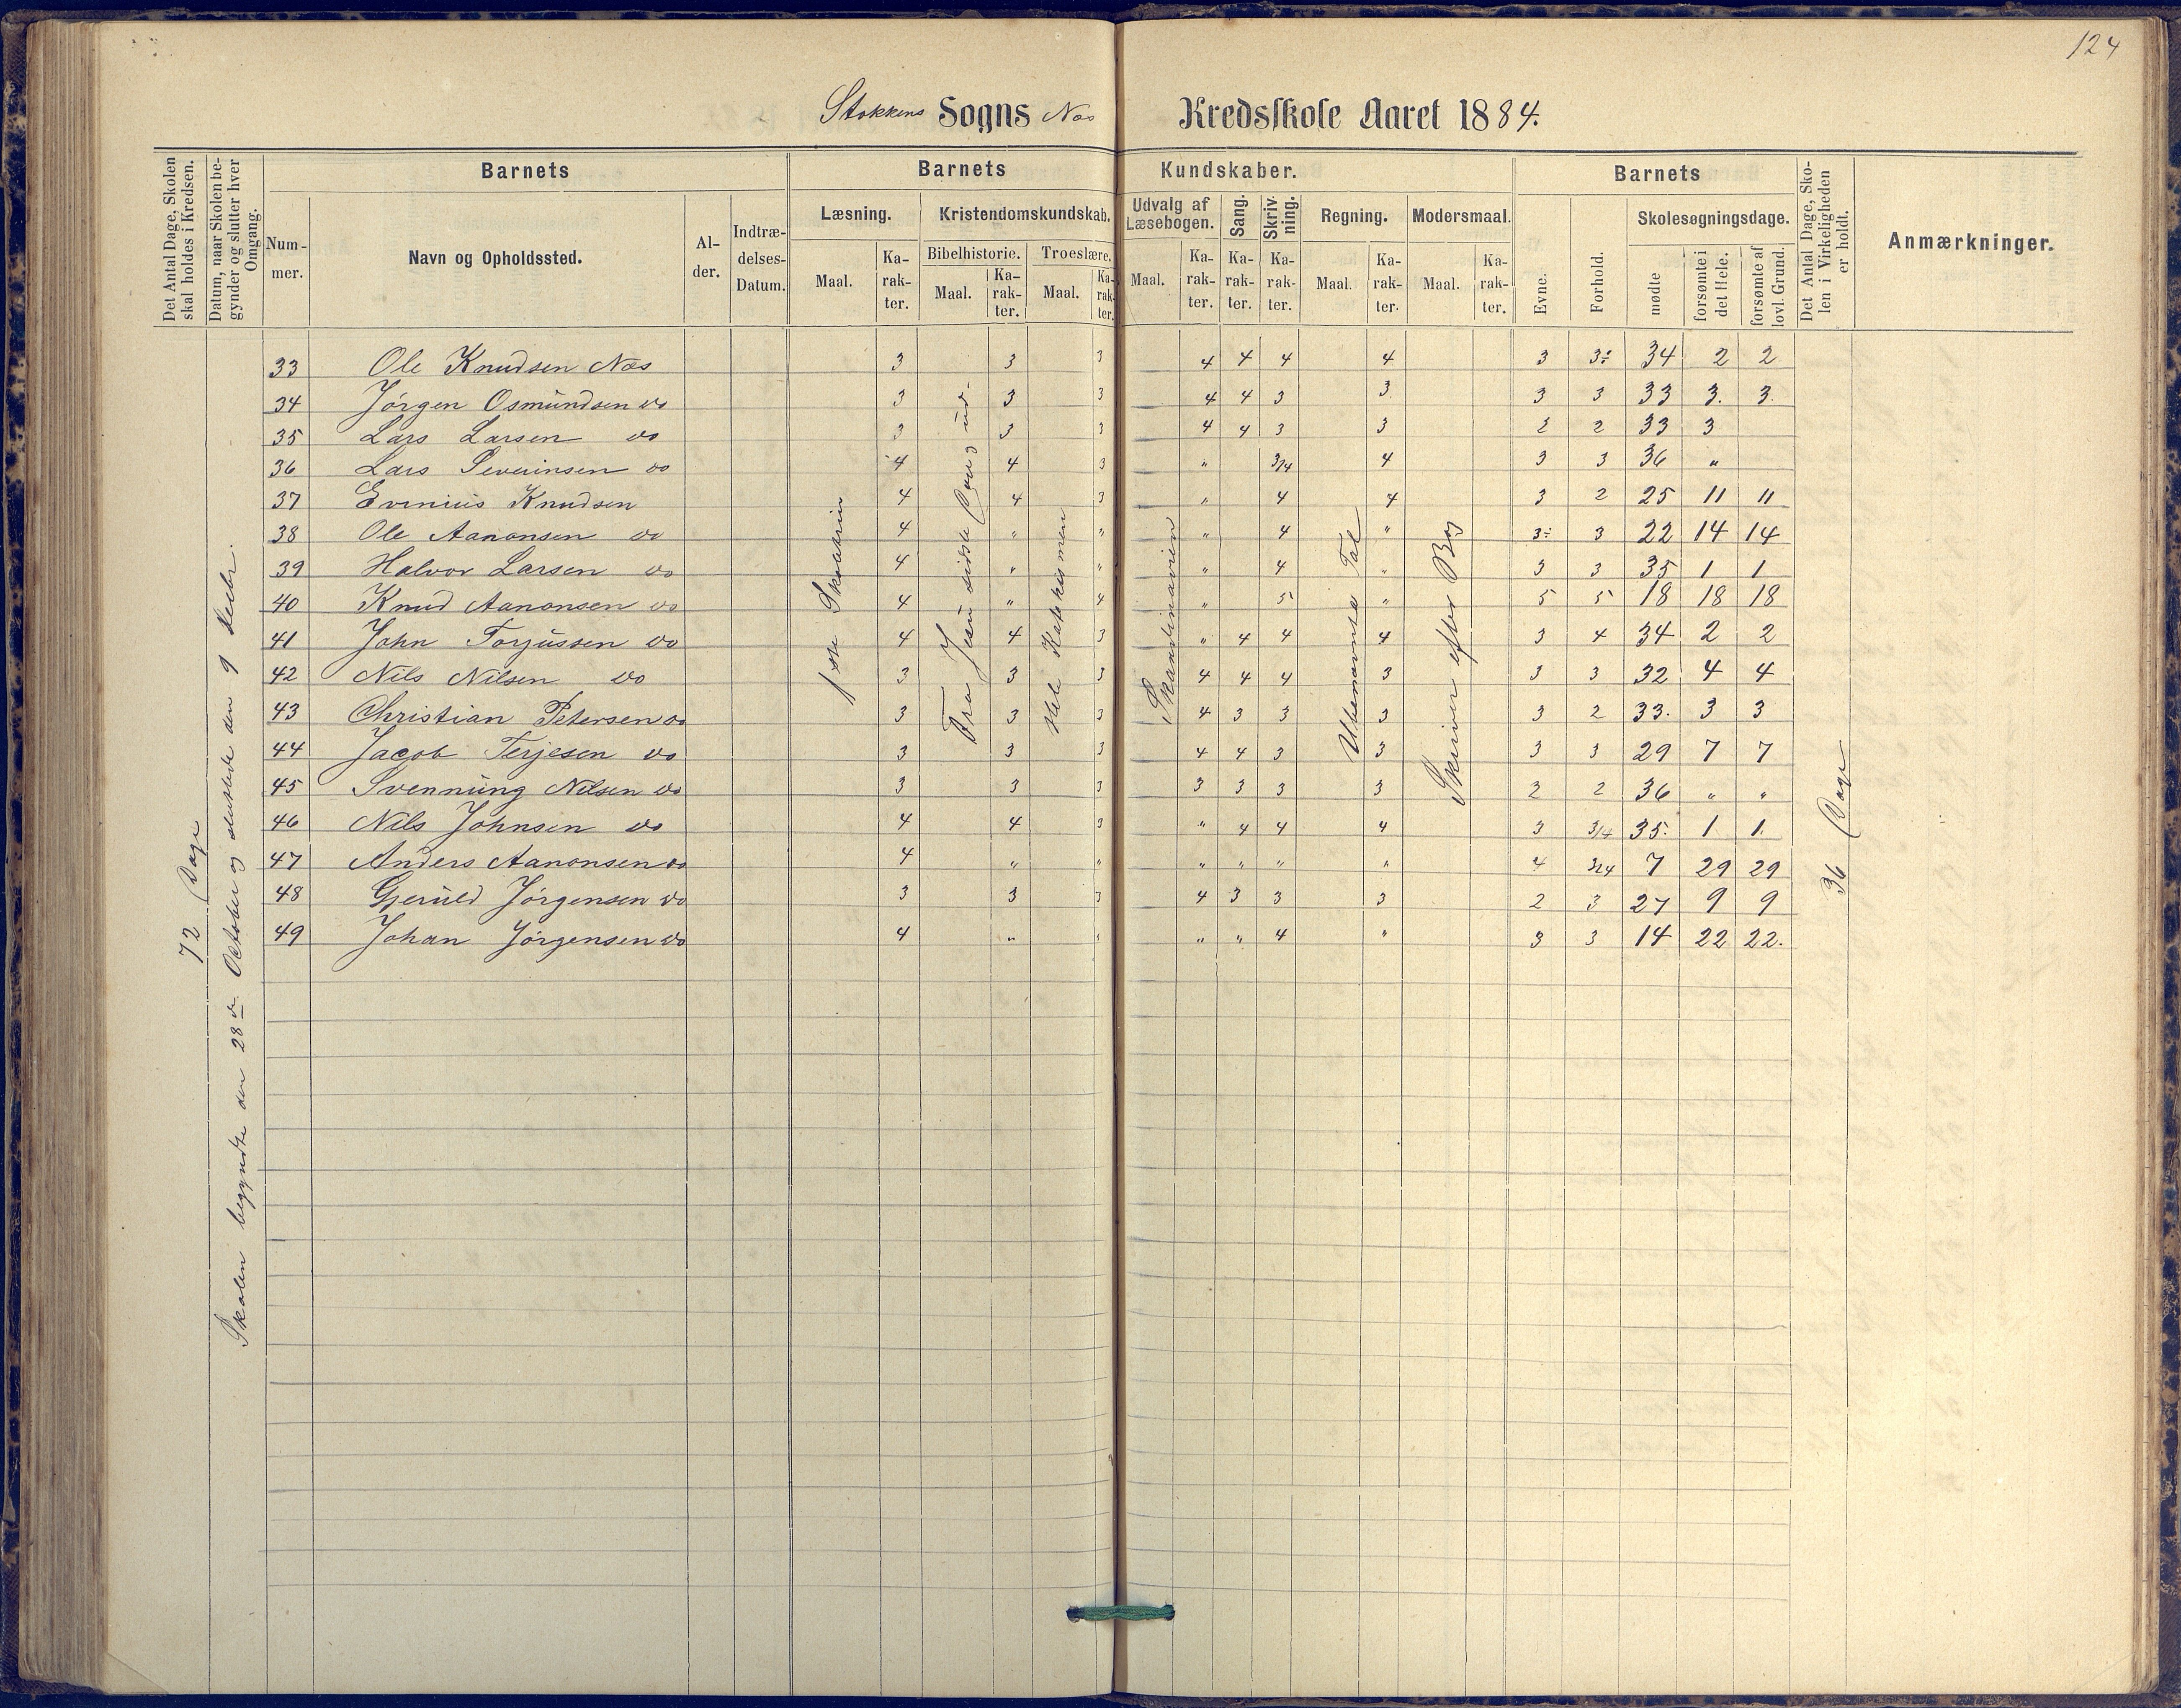 124
Stokkens Sogns Næs Kredsskole Aaret 1884.
Det Antal Dage, Skolen skal holdes i Kredsen.
Datum, naar Skolen begynder og slutter hver Omgang.
Barnets
Num-mer.
Navn og Opholdssted.
Al-der.
Indtræ-delses-Datum.
Barnets Kundskaber.
Læsning.
Maal.
Ka-rak-ter.
Kristendomskundskab.
Bibelhistorie.
Maal.
Ka-rak-ter.
Troeslære.
Maal.
Ka-rak-ter.
Udvalg af Læsebogen.
Maal.
Ka-rak-ter.
Sang.
Ka-rak-ter.
Skriv-ning.
Ka-rak-ter.
Regning.
Maal.
Ka-rak-ter.
Modersmaal.
Maal.
Ka-rak-ter.
Barnets
Evne.
Forhold.
Skolesøgningsdage.
mødte
forsømte i det Hele.
forsømte af lovl. Grund.
Det Antal Dage, Sko-len i Virkeligheden er holdt.
Anmærkninger.
72 Dage
Skolen begyndte den 28de October og sluttede den 9 Decbr.
1ste Skoletrin
Fra Jesu sidste Dag ud.
Hele Katekismen
Skandinavien
Ubenævnte Tal
Skriver efter Bog
36 Dage
33 Ole Knudsen Næs 3 3 3 4 4 4 4 3 3÷ 34 2 2
34 Jørgen Osmundsen do 3 3 3 4 4 3 3. 3 3 33 3. 3.
35 Lars Larsen do 3 3 3 4 4 3 3 2 2 33 3
36 Lars Severinsen do 4 4 3 " 3/4 4 3 3 36 "
37 Evenius Knudsen 4 4 3 " 4 4 3 2 25 11 11
38 Ole Aanonsen do 4 " " " 4 " 3÷ 3 22 14 14
39 Halvor Larsen do 4 " " " 4 " 3 3 35 1 1
40 Knud Aanonsen do 4 " 4 " 5 " 5 5 18 18 18
41 John Torjussen do 4 4 3 " 4 4 4 3 4 34 2 2
42 Nils Nilsen do 3 3 3 4 4 4 3 3 3 32 4 4
43 Christian Petersen do 3 3 3 4 3 3 3 3 2 33. 3 3
44 Jacob Terjesen do 3 3 3 4 4 3 3 3 3 29 7 7
45 Svennung Nilsen do 3 3 3 3 3 3 3 2 2 36 " "
46 Nils Johnsen do 4 4 3 " 4 4 4 3 3/4 35. 1 1.
47 Anders Aanonsen do 4 " " " " " " 4 3/4 7 29 29
48 Gjeruld Jørgensen do 3 3 3 4 3 3 3 2 3 27 9 9
49 Johan Jørgensen do 4 " " " " 4 " 3 3 14 22 22.